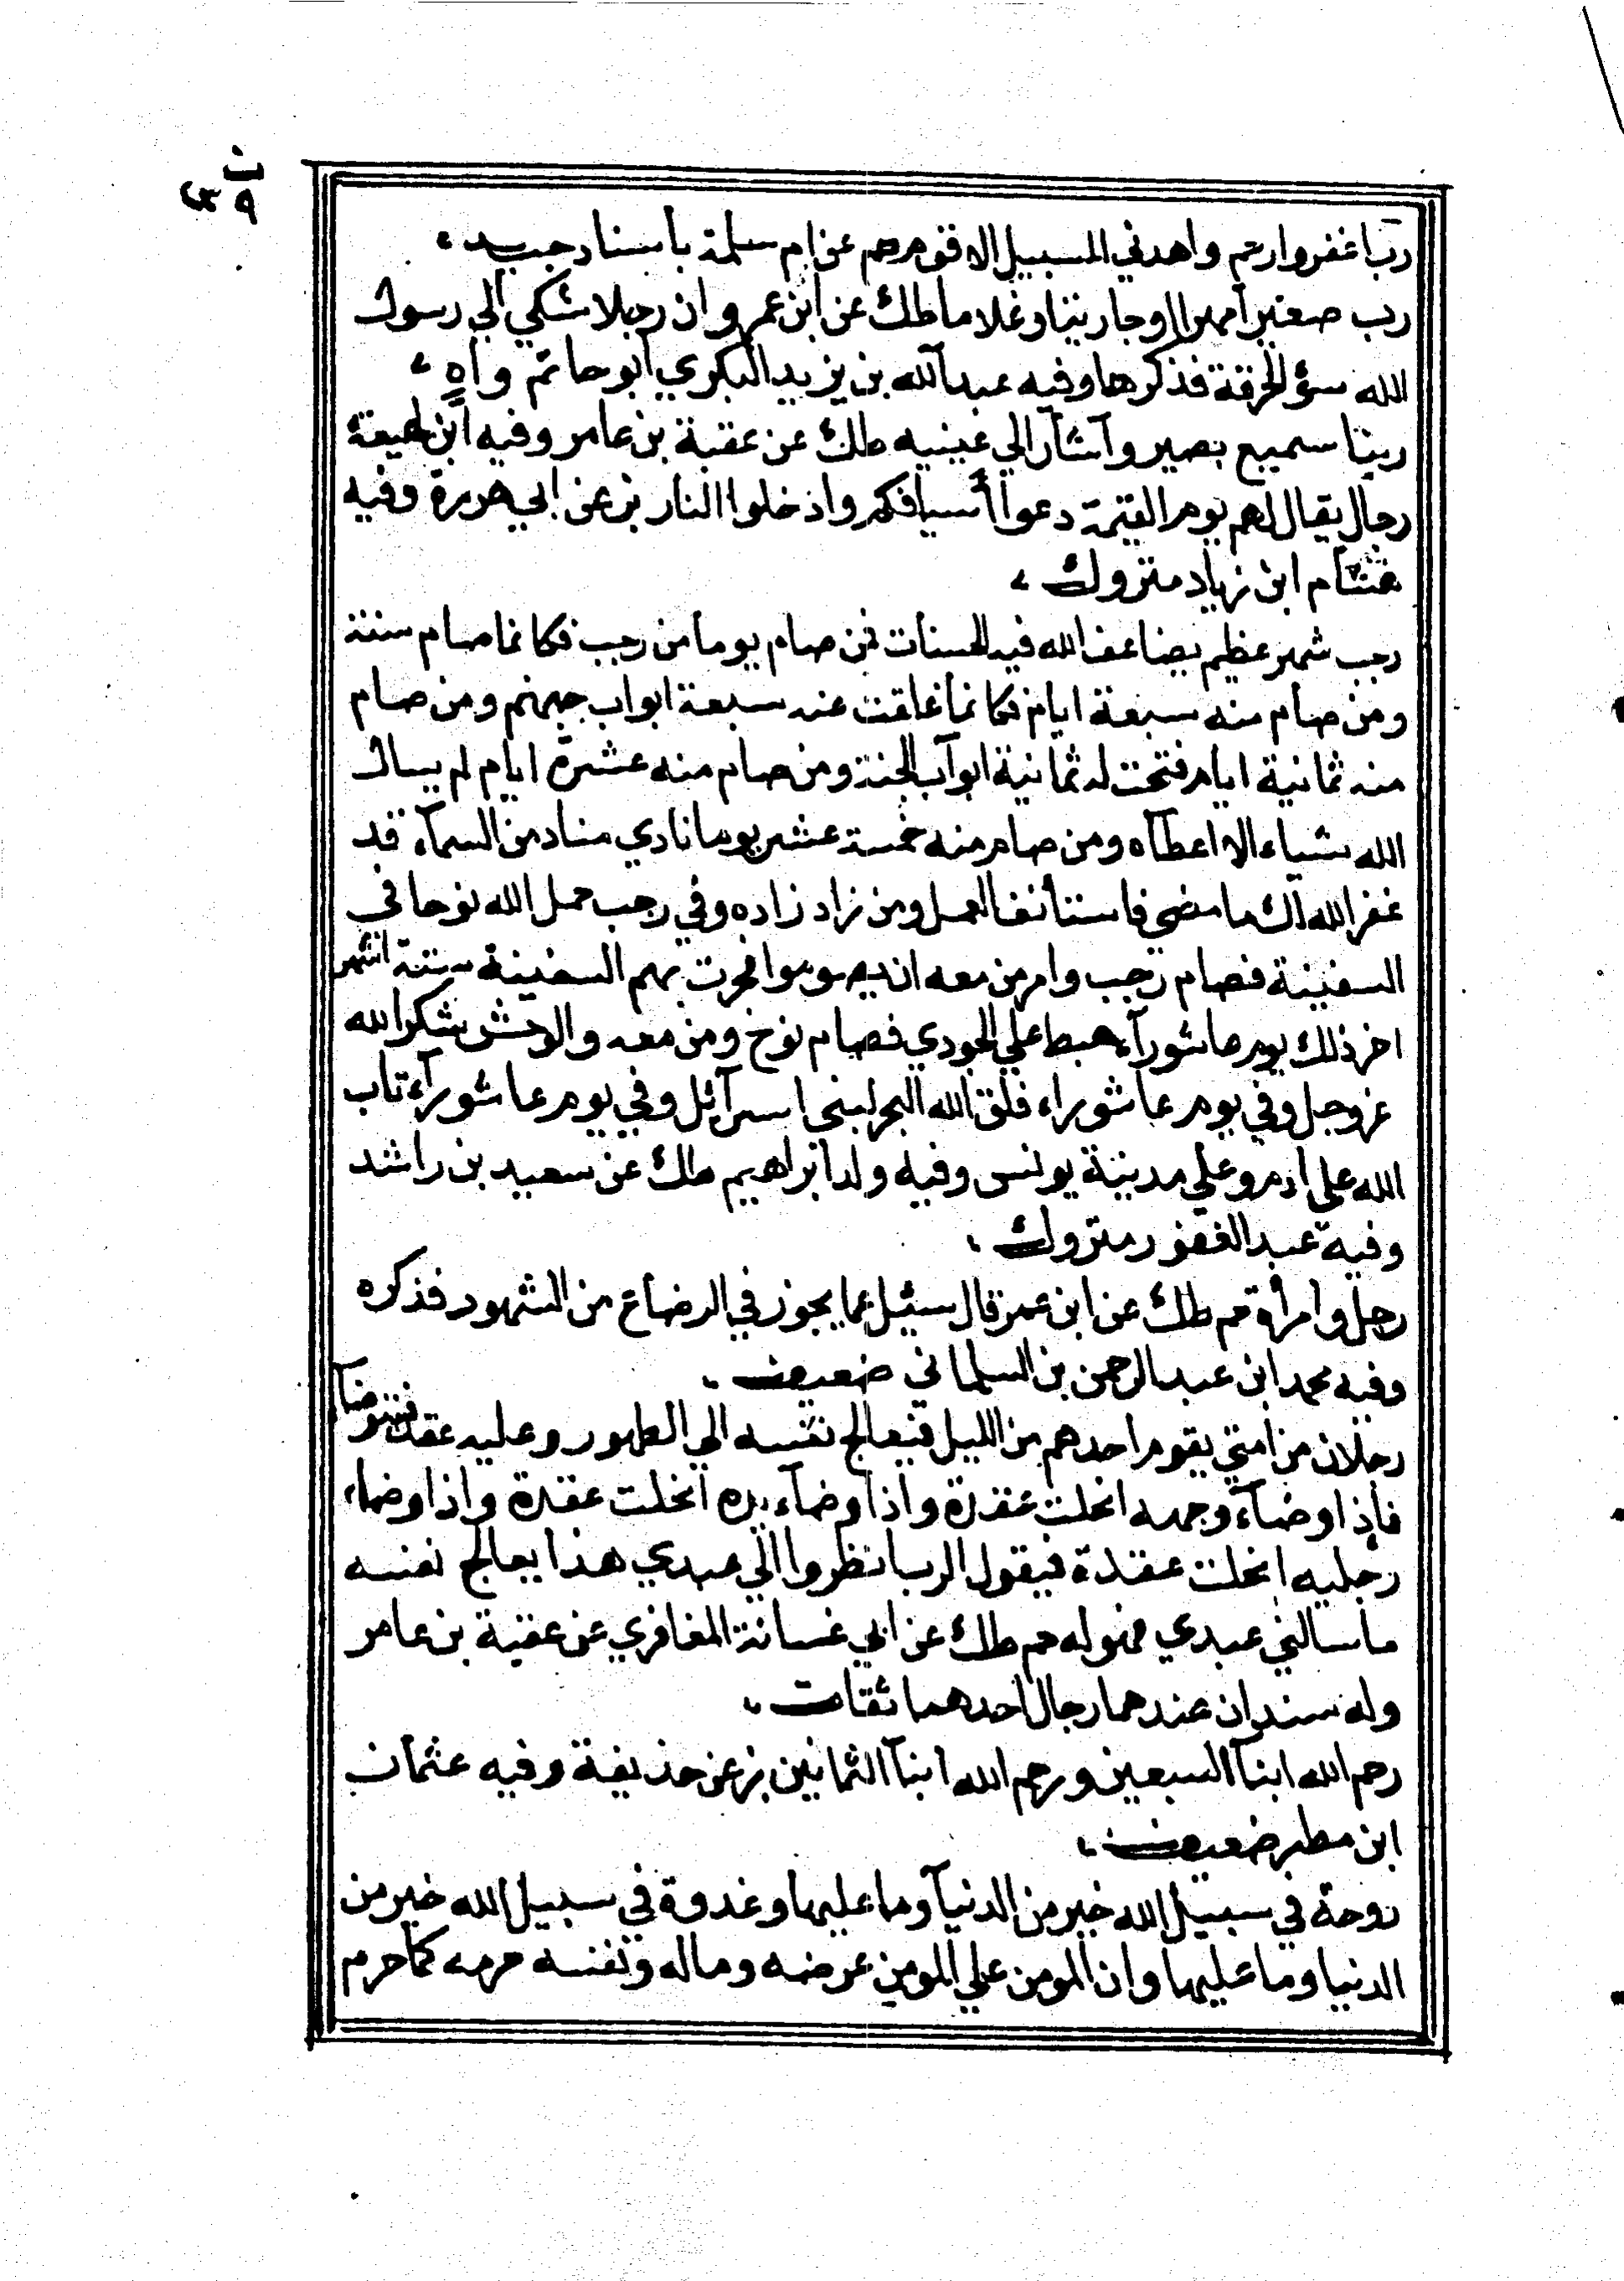 ن
٩ ٣٢
رب اغفر وارحم واهدني السبيل الاقوم حم عن ام سلمة باسناد جيد
رب صغير امهرا او جاريتا وغلاما طك عن ابن عمرو ان رجلا شكي الي رسول
الله سؤ الحرفة فذكرها وفيه عبد الله بن يزيد البكري ابو حاتم واه
ربنا سميع بصير وآشار الي عينيه طك عن عقبة بن عامر وفيه ابن لهيعة
رجال يقال لهم يوم القيمة دعوا أسيافكم وادخلوا النار بز عن ابي هريرة وفيه
هشام ابن زياد متروك
رجب شهر عظيم يضاعف الله فيه الحسنات فمن صام يوما من رجب فكانما صام سنة
ومن صام منه سبعة ايام فكانما غلقت عنه سبعة ابواب جهنم ومن صام
منه ثمانية ايام فتحت له ثمانية ابوآب الجنة ومن صام منه عشرة ايام لم يسال
الله شياء الا اعطآه ومن صام منه خمسة عشر يوما نادي مناد من السمآء قد
غفر الله لك ما مضي فاستأنف العمل ومن زاد زاده وفي رجب حمل الله نوحا في
السفينة فصام رجب وامر من معه ان يصوموا فجرت بهم السفينة ستة اشهر
اخر ذلك يوم عاشورآء هبط علي الجودي فصام نوح ومن معه والوحش شكرا لله
عز وجل وفي يوم عاشوراء فلق الله البحر لبني اسرآئل وفي يوم عاشورآء تاب
الله على ادم وعلي مدينة يونس وفيه ولد ابراهيم طك عن سعيد بن راشد
وفيه عبد الغفور متروك
رجل وامرأة حم طك عن ابن عمر قال سئيل عما يجوز في الرضاع من الشهود فذكره
وفيه محمد ابن عبد الرحمن بن السلماني ضعيف
رجلان من امتي يقوم احدهم من الليل فيعالج نفسه الي الطهور وعليه عقد فيتوضآ
فأذا وضآء وجهه انحلت عقدة واذا وضآء يده انحلت عقدة واذا وضاء
رجليه انحلت عقدة فيقول الرب انظروا الي عبدي هذا يعالج نفسه
ما سالني عبدي فهو له حم طك عن ابي غسانة المغافري عن عقبة بن عامر
وله سندان عندهما رجال احدهما ثقات
رحم الله ابنآ السبعين ورحم الله ابنآ الثمانين بز عن حذيفة وفيه عثمان
ابن مطر ضعيف
روحة في سبيل الله خير من الدنيآ وما عليها وغدوة في سبيل الله خير من
الدنيا وما عليها وان المومن علي المومن عرضه وماله ونفسه حرمه كما حرم